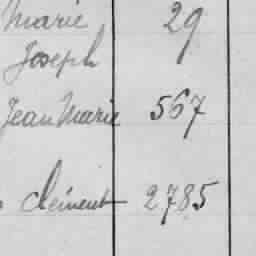 Marie 29
Joseph
Jean Marie 567
Clément 2785